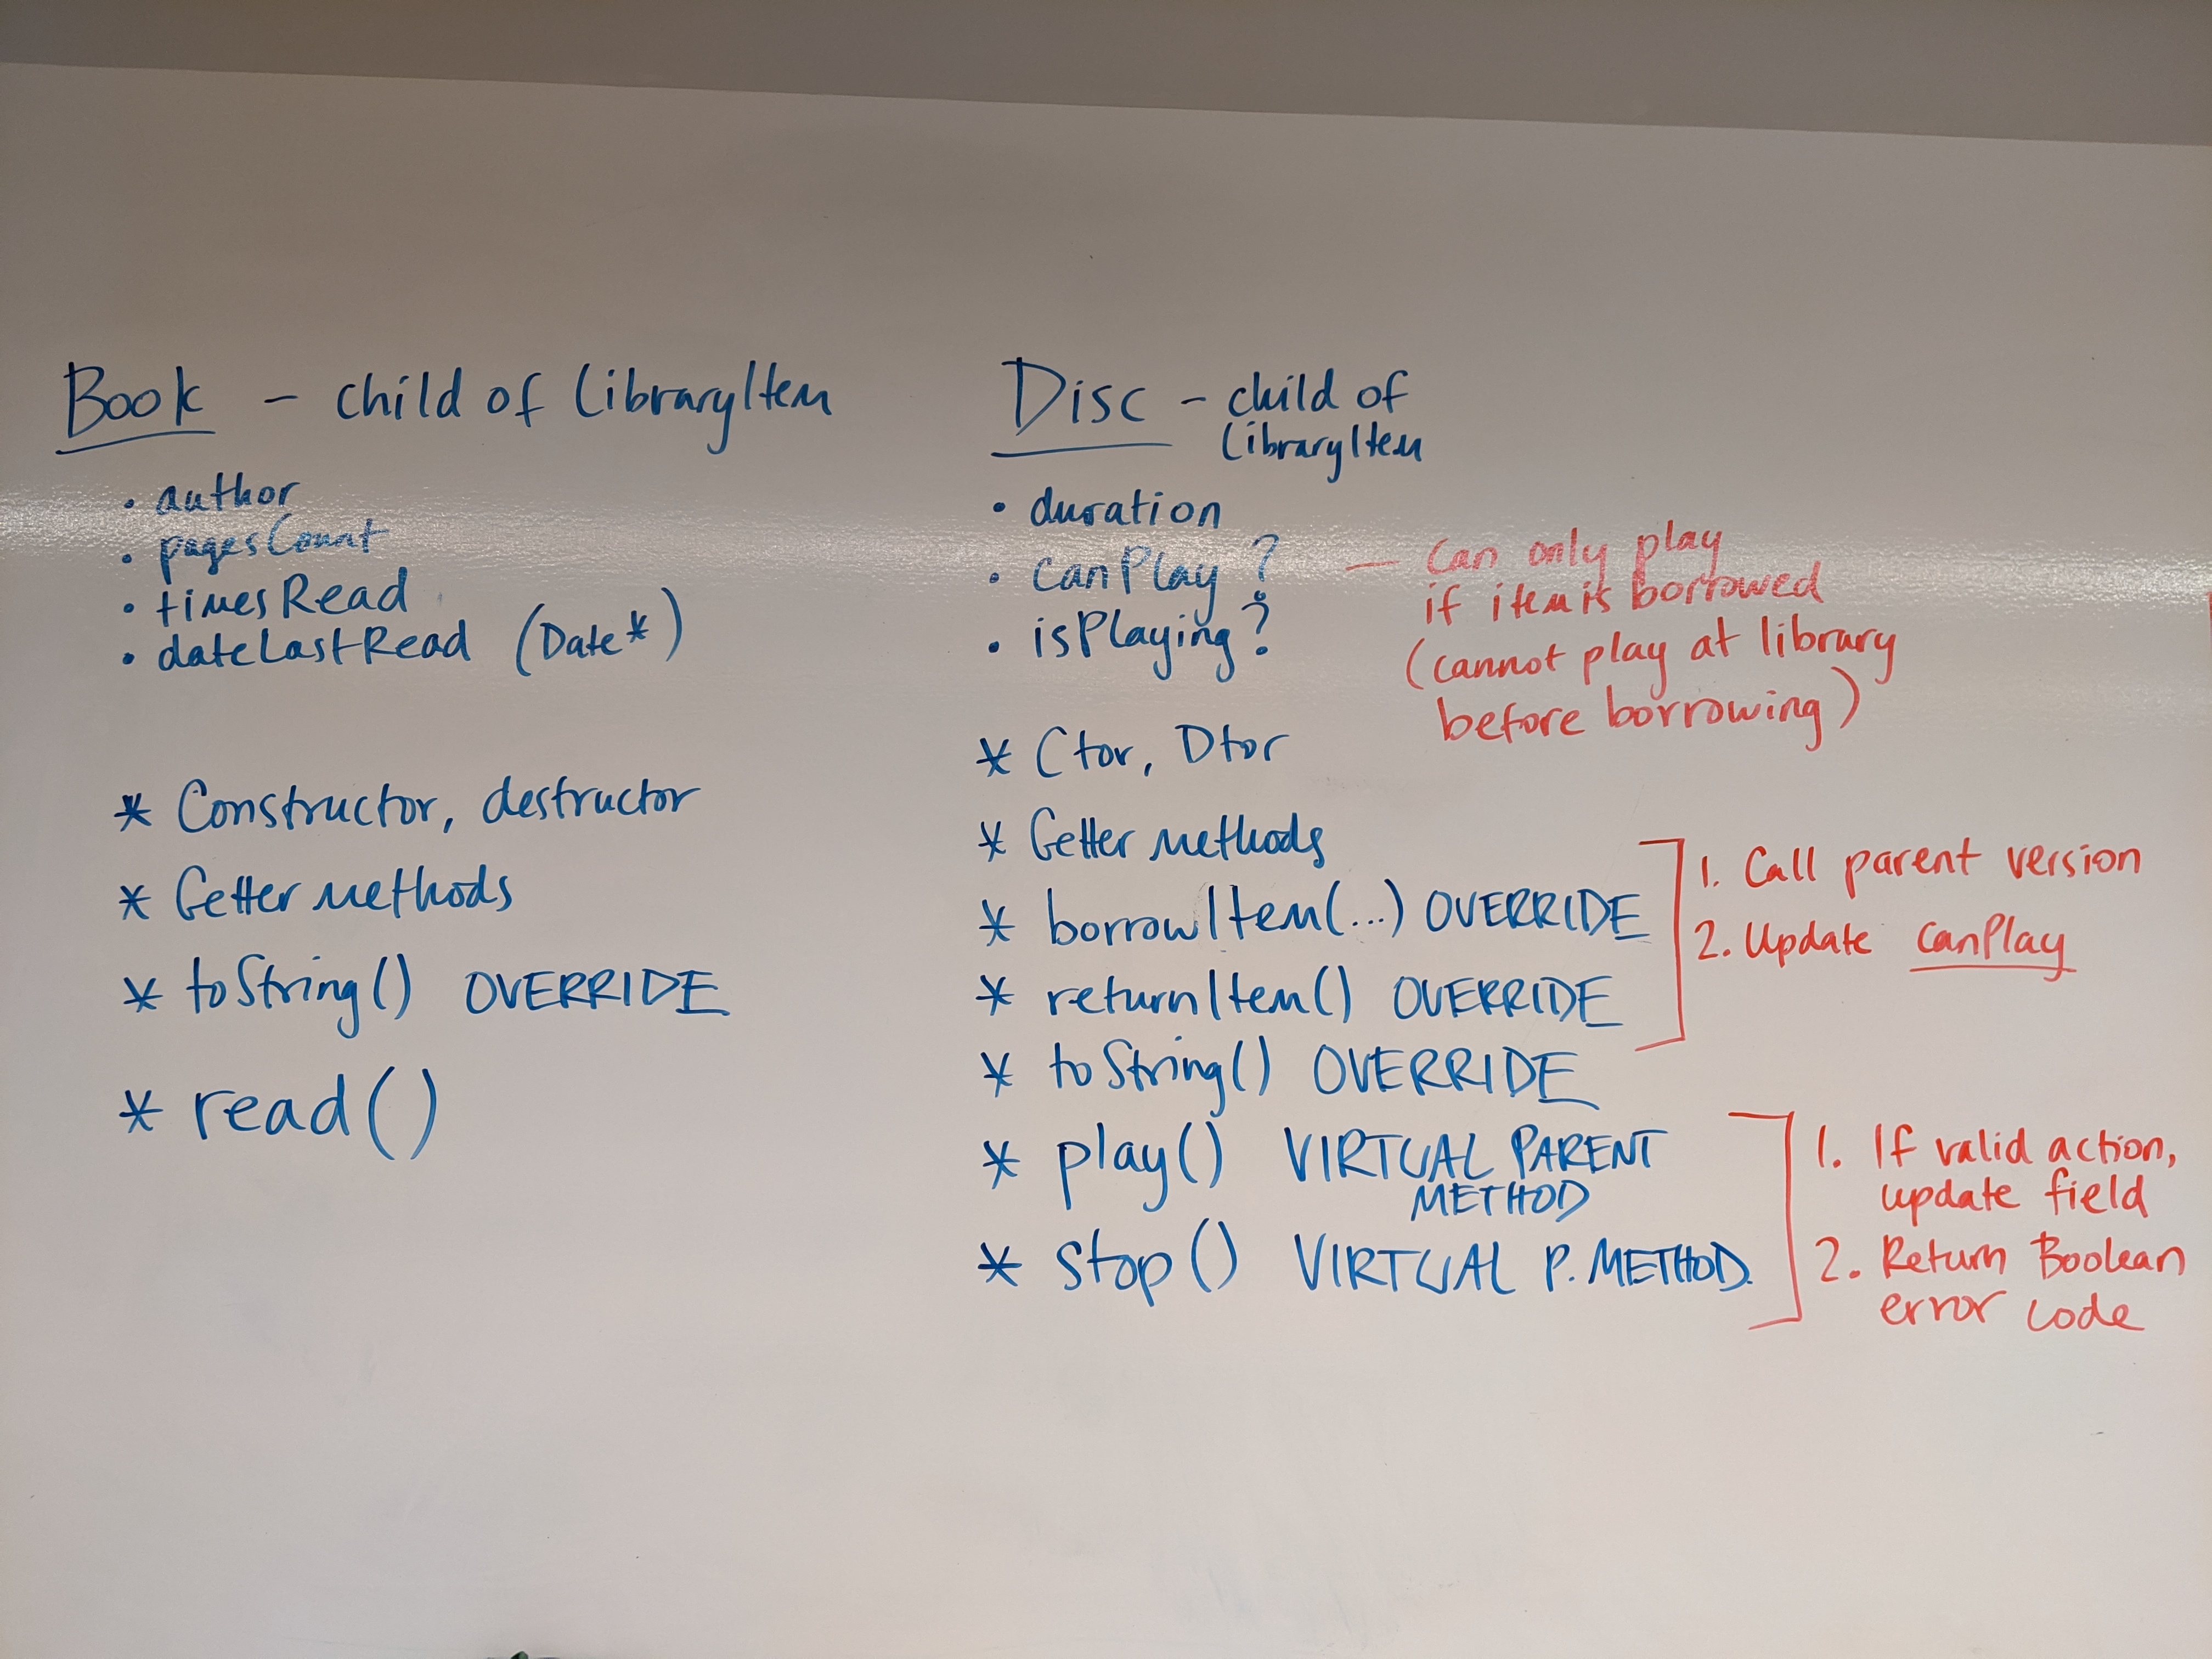 Book - child of LibraryItem
• author
• pagesCount
• timesRead
• dateLastRead (Date*)
* Constructor, destructor
* Getter methods
* toString() OVERRIDE
* read()
Disc - child of
LibraryItem
• duration
• canPlay?
• isPlaying?
— Can only play
if item is borrowed
(cannot play at library
before borrowing)
* Ctor, Dtor
* Getter methods
* borrowItem(...) OVERRIDE
* returnItem() OVERRIDE
1. Call parent version
2. Update canPlay
* toString() OVERRIDE
* play() VIRTUAL PARENT
METHOD
* stop() VIRTUAL P. METHOD
1. If valid action,
update field
2. Return Boolean
error code